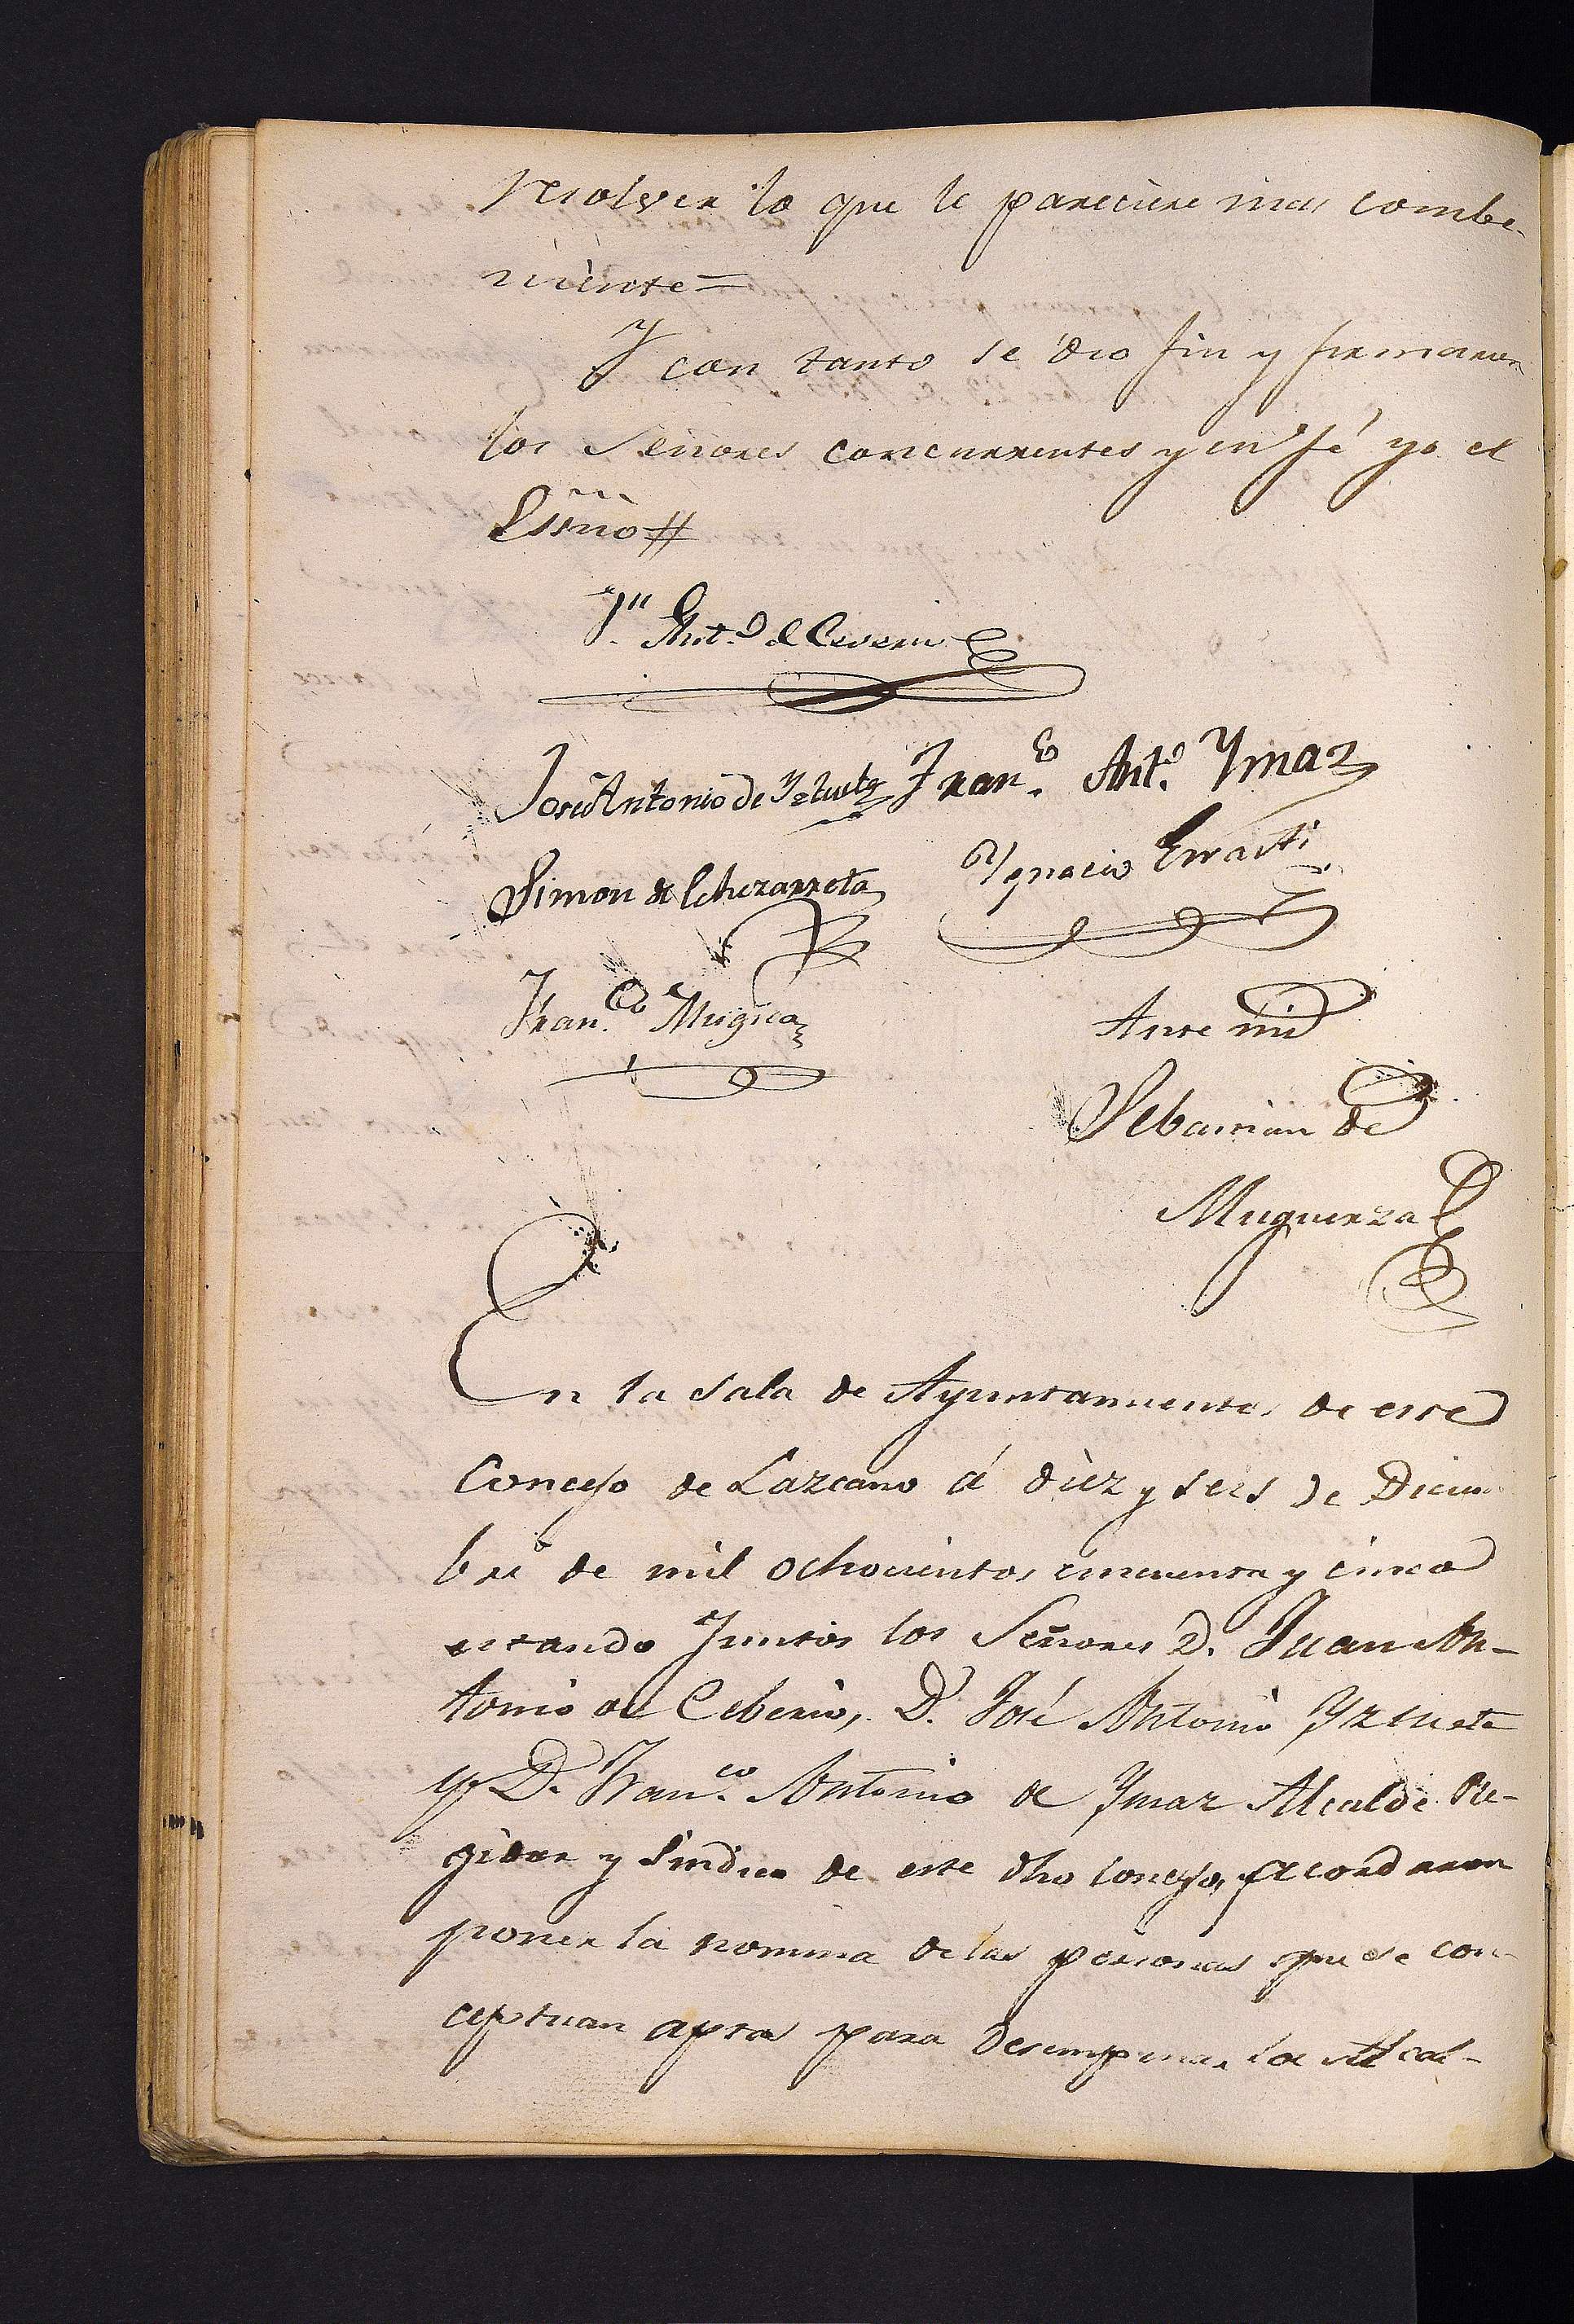 resolver lo que le pareciere mas combe-
niente=
Y con tanto se dio fin y firmaron
los Señores concurrentes y en fé yo el
Essño #
Jn. Anto. de Ceverio
José Antonio de Yztueta Franco. Anto. Ymaz
Simon de Echezarreta Ygnacio Errasti
Franco. Mugica
Ante mi
Sebastian de
Muguerza
En la Sala de Ayuntamiento de este
Concejo de Lazcano á diez y seis de Diciem
bre de mil ochocientos cincuenta y cinco
estando Juntos los Señores D. Juan An-
tonio de Ceberio, D. José Antonio Yztueta
y D. Franco. Antonio de Ymaz Alcalde Re-
gidor y Sindico de este dho Concejo, acordaron
poner la nomina de las personas que se con-
ceptuan aptas para desempeñar la Alcal-